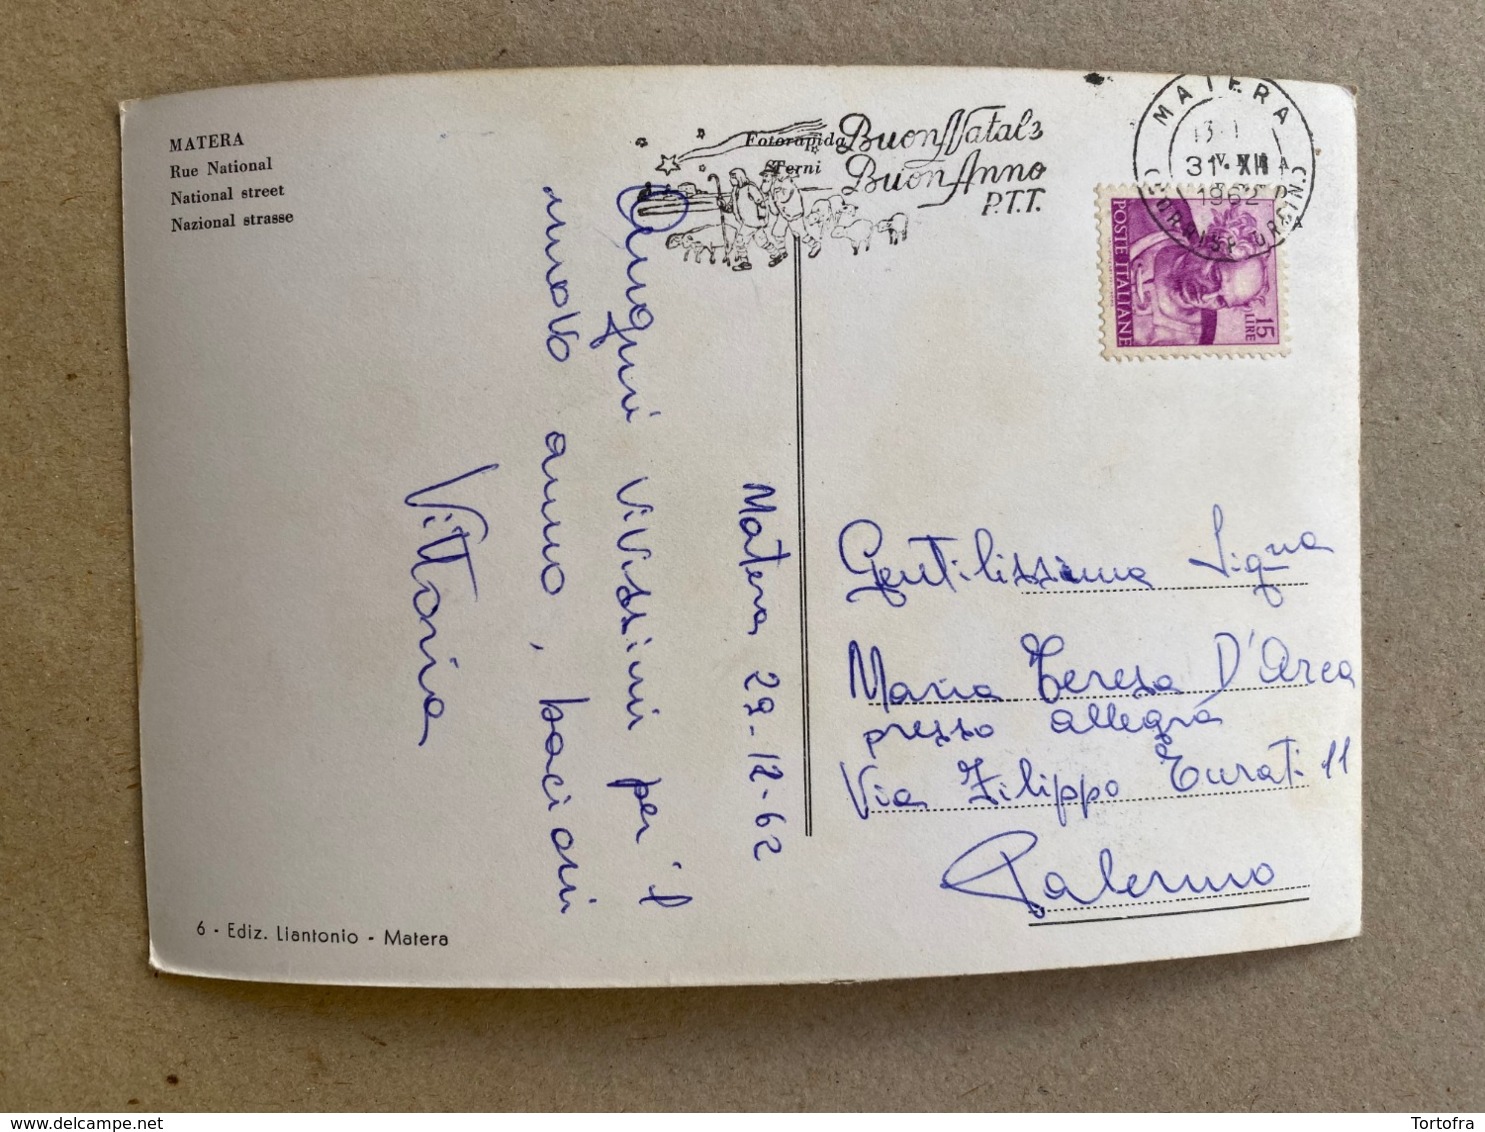 MATERA
Rue National
National street
Nazional strasse
Fotorapida
Terni
Buon Natale
Buon Anno
P.T.T.
MATERA
13-
31 XII
1962
POSTE ITALIANE
15
LIRE
Matera 29-12-62
Auguri vivissimi per il
nuovo anno, bacioni
Vittoria
Gentilissima Sig.na
Maria Teresa D'Arca
presso Allegra
Via Filippo Turati 11
Palermo
6 - Ediz. Liantonio - Matera
Tortofra